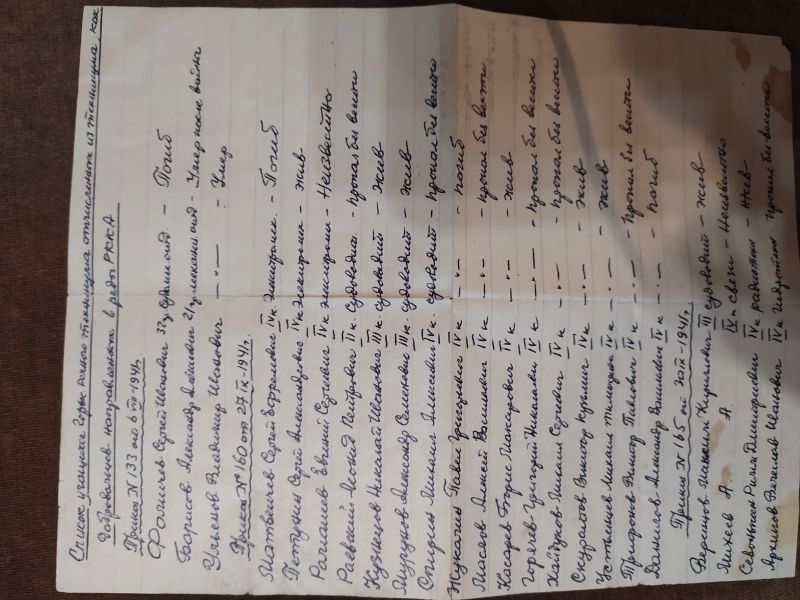 Список учащихся Горьк. речного техникума отчисленных из техникума как
добровольцев направленных в ряды РККА
Приказ № 133 от 6 VIII - 1941 г.
Фомичев Сергей Иванович 32 гр. - Погиб
Борисов Александр Алексеевич 21 гр. механ. отд - Умер после войны
Ульянов Владимир Иванович —"— - Умер
Приказ № 160 от 27 IX - 1941 г.
Матвеичев Сергей Ефремович IV к электромех. - Погиб
Петунин Сергей Александрович IV к электромех - жив
Рогачев Евгений Сергеевич IV к электромех - Неизвестно
Раевский Леонид Петрович II к Судоводит. - пропал без вести
Кузнецов Николай Иванович III к судоводит - Жив
Мурунов Александр Семенович III к судоводит - жив
Спирин Михаил Алексеевич IV к судоводит - пропал без вести
Жукачев Павел Григорьевич IV к —"— - погиб
Масаов Алексей Васильевич IV к —"— - пропал без вести
Косарев Борис Макарович IV к —"— - жив
Горячев Григорий Николаевич IV к —"— - пропал без вести
Хайдуков Михаил Сергеевич IV к —"— - пропал без вести
Скуратов Виктор Кузьмич IV к —"— - Жив
Устымцев Михаил Тимофеевич IV к —"— - Жив
Трифонов Виктор Павлович IV к —"— - Пропал без вести
Данилов Александр Васильевич IV к —"— - Погиб
Приказ № 165 от 3 - 1941 г.
Верещагин Кириллович III судоводит - Жив
Михеев А. А. IV к связи - Неизвестно
Севонькин Рима Дмитриевич IV к радиотехн - Жив
Архипов Вячеслав Иванович IV к Гидротехн. пропал без вести